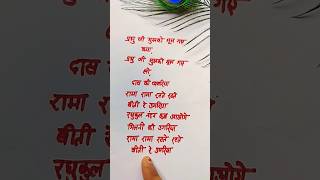 प्रभु जी मुझको भूल गए
क्या
प्रभु जी मुझको भूल गए
दास की
रामा रामा रटते रटते
बीती रे उमरिया
रघुकुल नंदन कब आओगे
भिलनी की डगरिया
रामा रामा रटते रटते
बीती रे उमरिया